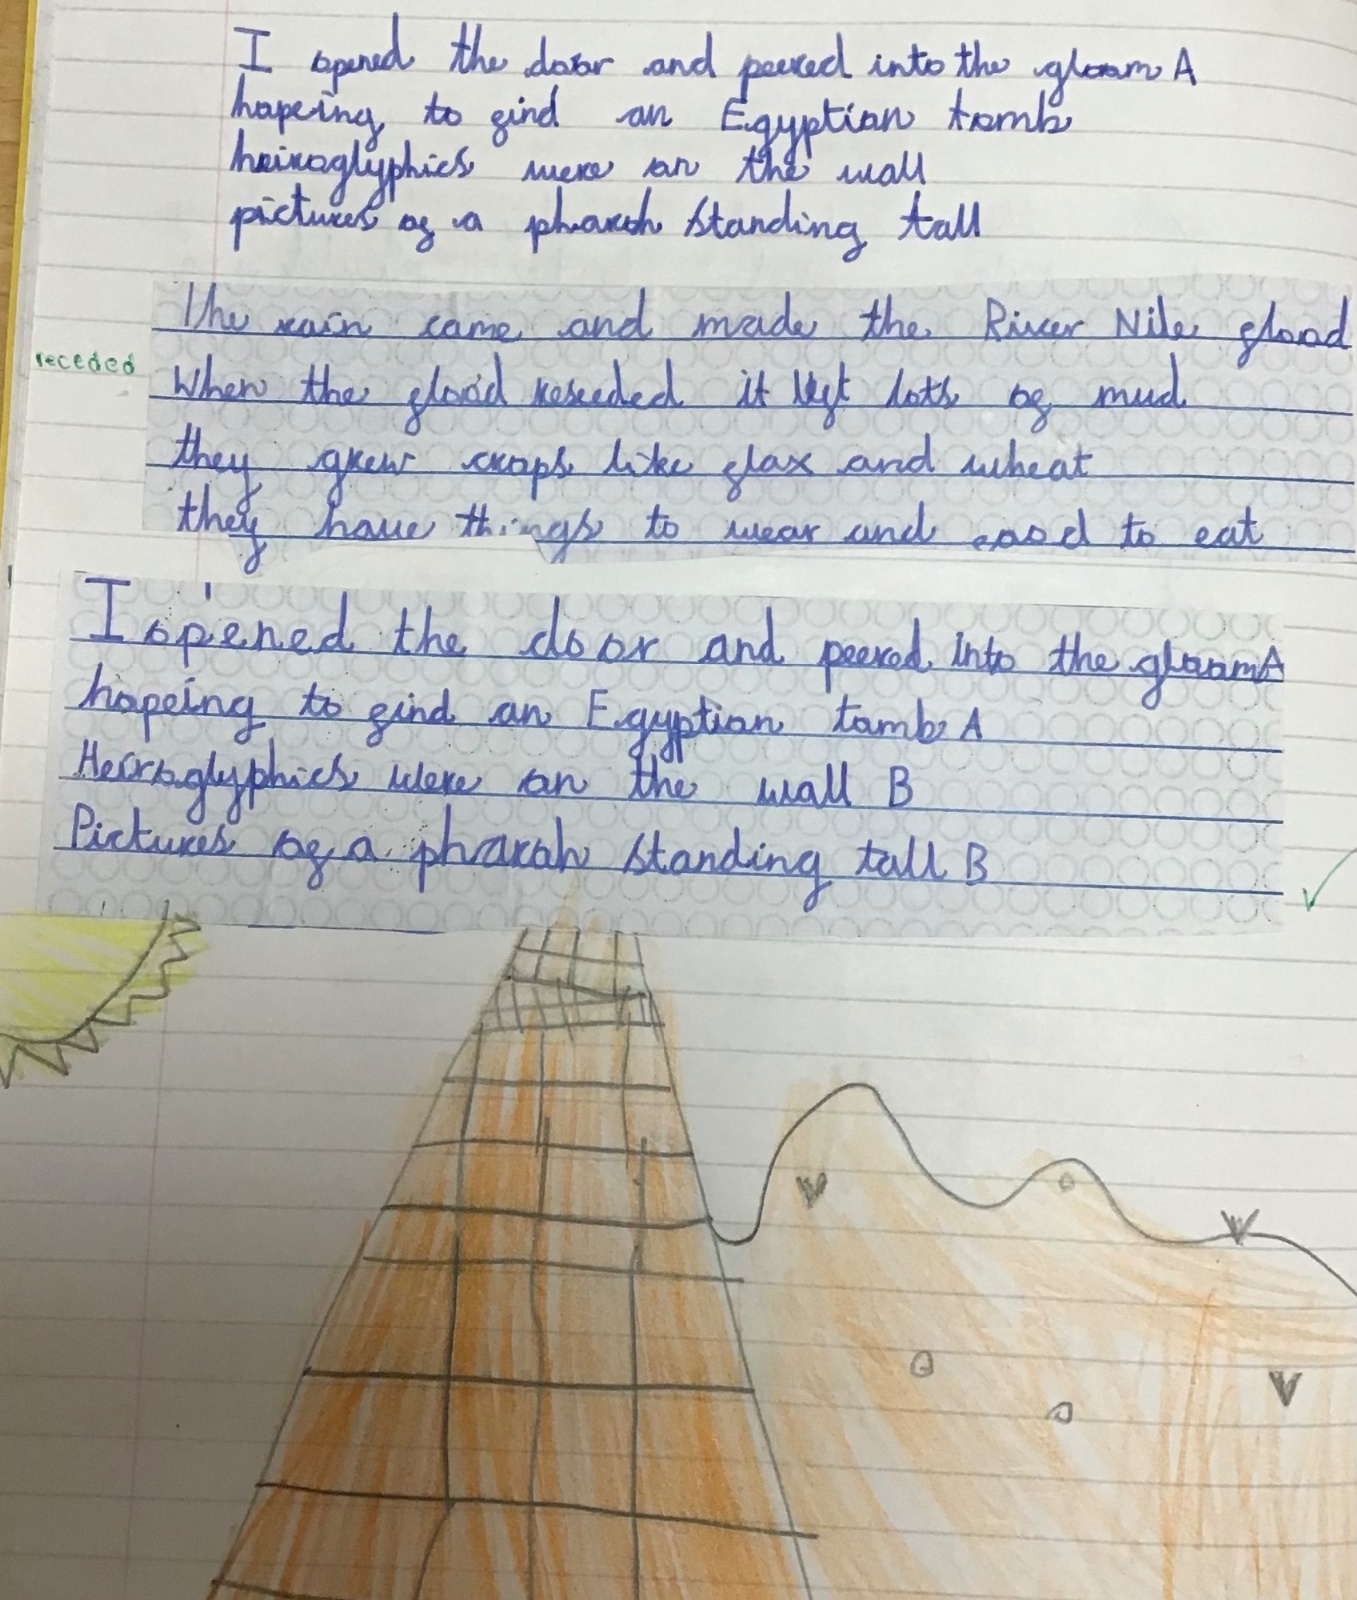 I opened the door and peered into the gloom A
hopeing to find an Egyptian tomb
heiroglyphics were on the wall
pictures of a pharoh standing tall
The rain came and made the River Nile flood
receded
When the flood reseeded it left lots of mud
they grew crops like flax and wheat
they have things to wear and food to eat
I opened the door and peered into the gloom A
hopeing to find an Egyptian tomb A
Heiroglyphics were on the wall B
Pictures of a pharoh standing tall B